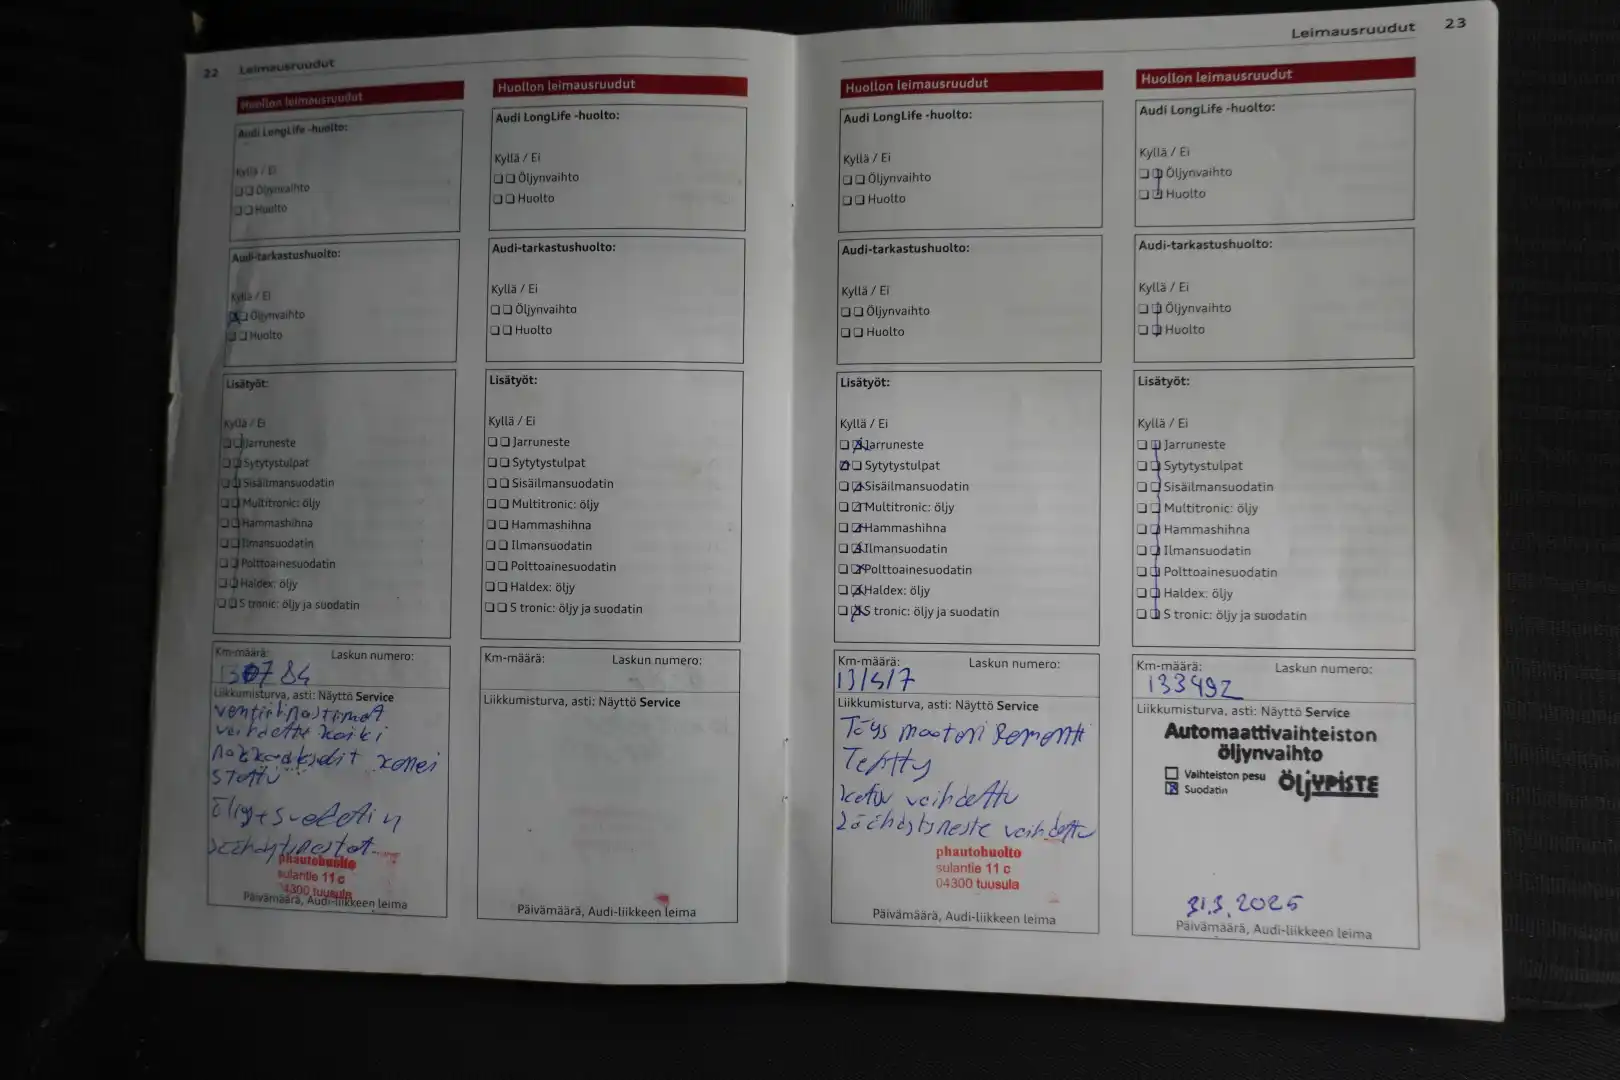 22 Leimausruudut
Huollon leimausruudut
Audi LongLife -huolto:
Kyllä / Ei
Öljynvaihto
Huolto
Audi-tarkastushuolto:
Kyllä / Ei
Öljynvaihto
Huolto
Lisätyöt:
Kyllä / Ei
Jarruneste
Sytytystulpat
Sisäilmansuodatin
Multitronic: öljy
Hammashihna
Ilmansuodatin
Polttoainesuodatin
Haldex: öljy
S tronic: öljy ja suodatin
Km-määrä: Laskun numero:
130784
Liikkumisturva, asti: Näyttö Service
vaihdettu kaiki
öljy+suodatin
phautohuolto
sulantie 11 c
04300 tuusula
Päivämäärä, Audi-liikkeen leima
Huollon leimausruudut
Audi LongLife -huolto:
Kyllä / Ei
Öljynvaihto
Huolto
Audi-tarkastushuolto:
Kyllä / Ei
Öljynvaihto
Huolto
Lisätyöt:
Kyllä / Ei
Jarruneste
Sytytystulpat
Sisäilmansuodatin
Multitronic: öljy
Hammashihna
Ilmansuodatin
Polttoainesuodatin
Haldex: öljy
S tronic: öljy ja suodatin
Km-määrä: Laskun numero:
Liikkumisturva, asti: Näyttö Service
Päivämäärä, Audi-liikkeen leima
Leimausruudut 23
Huollon leimausruudut
Audi LongLife -huolto:
Kyllä / Ei
Öljynvaihto
Huolto
Audi-tarkastushuolto:
Kyllä / Ei
Öljynvaihto
Huolto
Lisätyöt:
Kyllä / Ei
Jarruneste
Sytytystulpat
Sisäilmansuodatin
Multitronic: öljy
Hammashihna
Ilmansuodatin
Polttoainesuodatin
Haldex: öljy
S tronic: öljy ja suodatin
Km-määrä: Laskun numero:
131417
Liikkumisturva, asti: Näyttö Service
Täys moottori Remontti
Tehtty
vaihdettu
Jäähdytysneste vaihdettu
phautohuolto
sulantie 11 c
04300 tuusula
Päivämäärä, Audi-liikkeen leima
Huollon leimausruudut
Audi LongLife -huolto:
Kyllä / Ei
Öljynvaihto
Huolto
Audi-tarkastushuolto:
Kyllä / Ei
Öljynvaihto
Huolto
Lisätyöt:
Kyllä / Ei
Jarruneste
Sytytystulpat
Sisäilmansuodatin
Multitronic: öljy
Hammashihna
Ilmansuodatin
Polttoainesuodatin
Haldex: öljy
S tronic: öljy ja suodatin
Km-määrä: Laskun numero:
133492
Liikkumisturva, asti: Näyttö Service
Automaattivaihteiston
öljynvaihto
Vaihteiston pesu
Suodatin
ÖLJYPISTE
31.3.2025
Päivämäärä, Audi-liikkeen leima